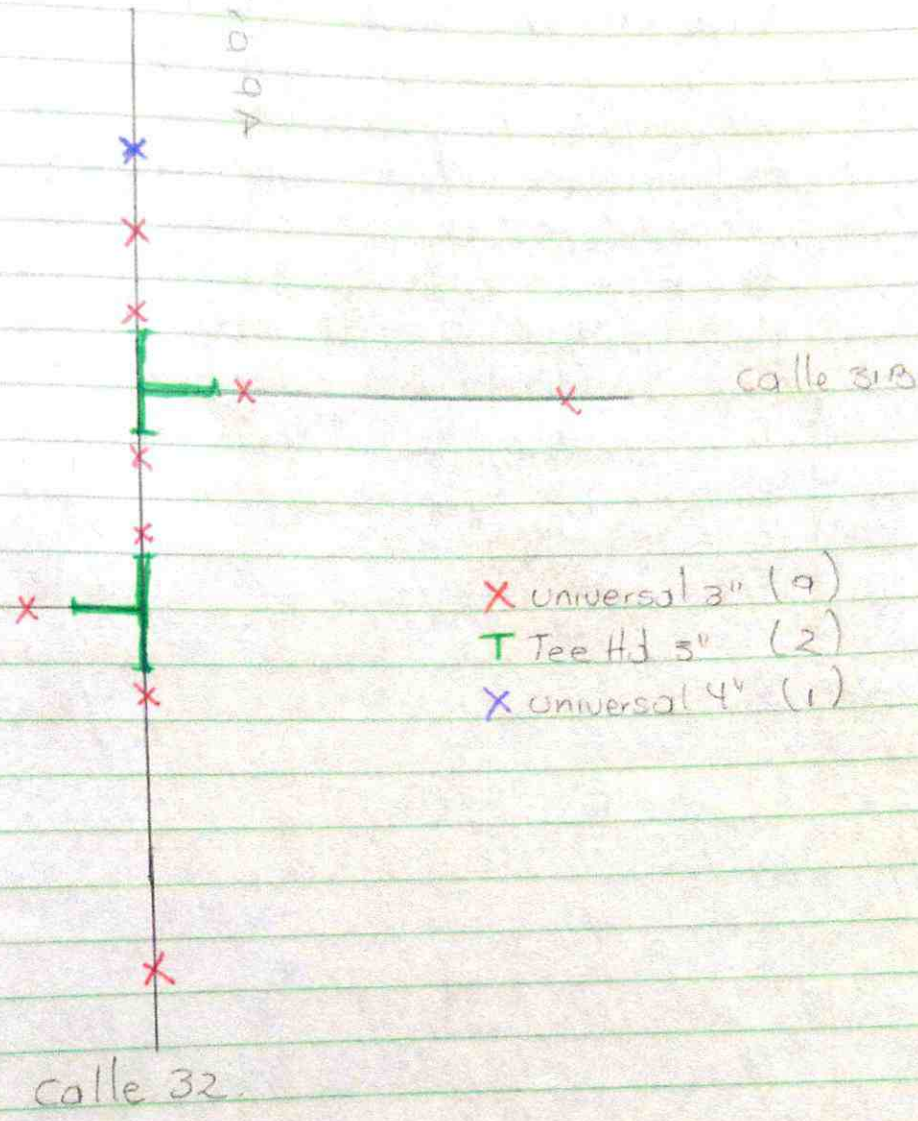 calle 31B
X universal 3" (9)
T Tee Hd 3" (2)
X universal 4" (1)
calle 32.